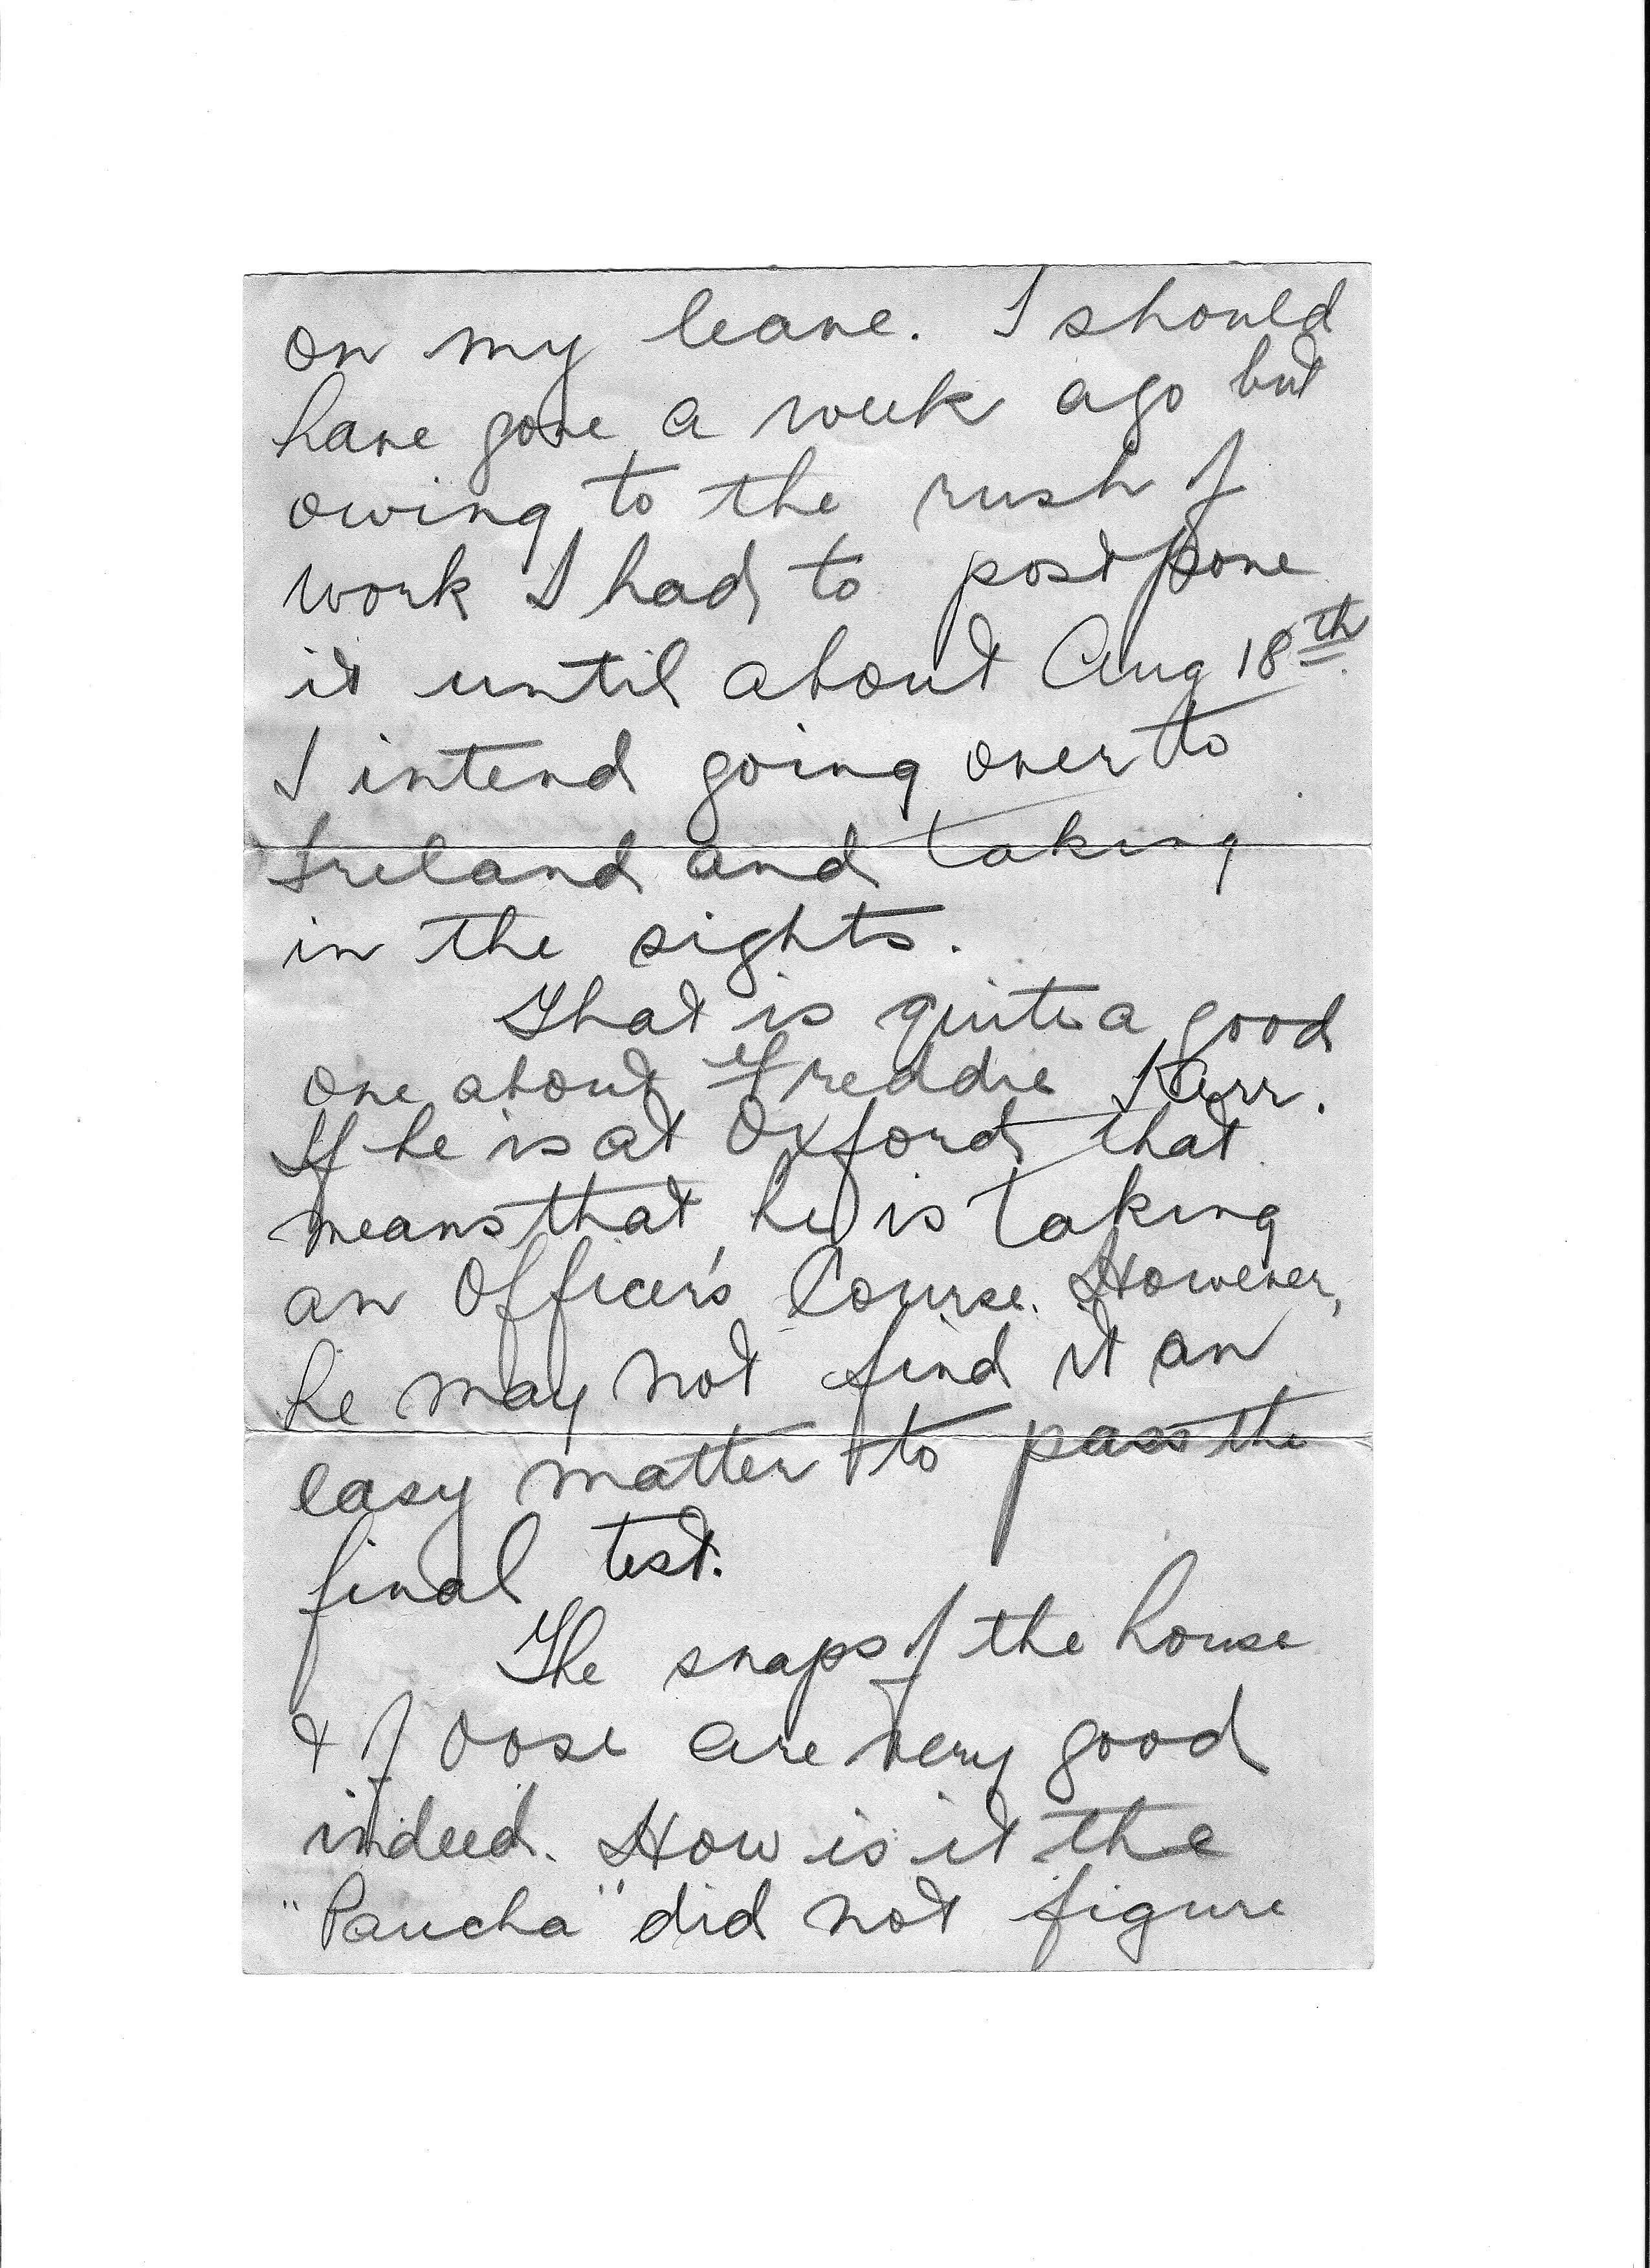 on my leave. I should
have gone a week ago but
owing to the rush of
work I had to postpone
it until about Aug 18th.
I intend going over to
Ireland and taking
in the sights.
That is quite a good
one about Freddie Kerr.
If he is at Oxford that
means that he is taking
an Officer's Course. However,
he may not find it an
easy matter to pass the
final test.
The snaps of the house
& of are very good
indeed. How is it the
"Paucha" did not figure